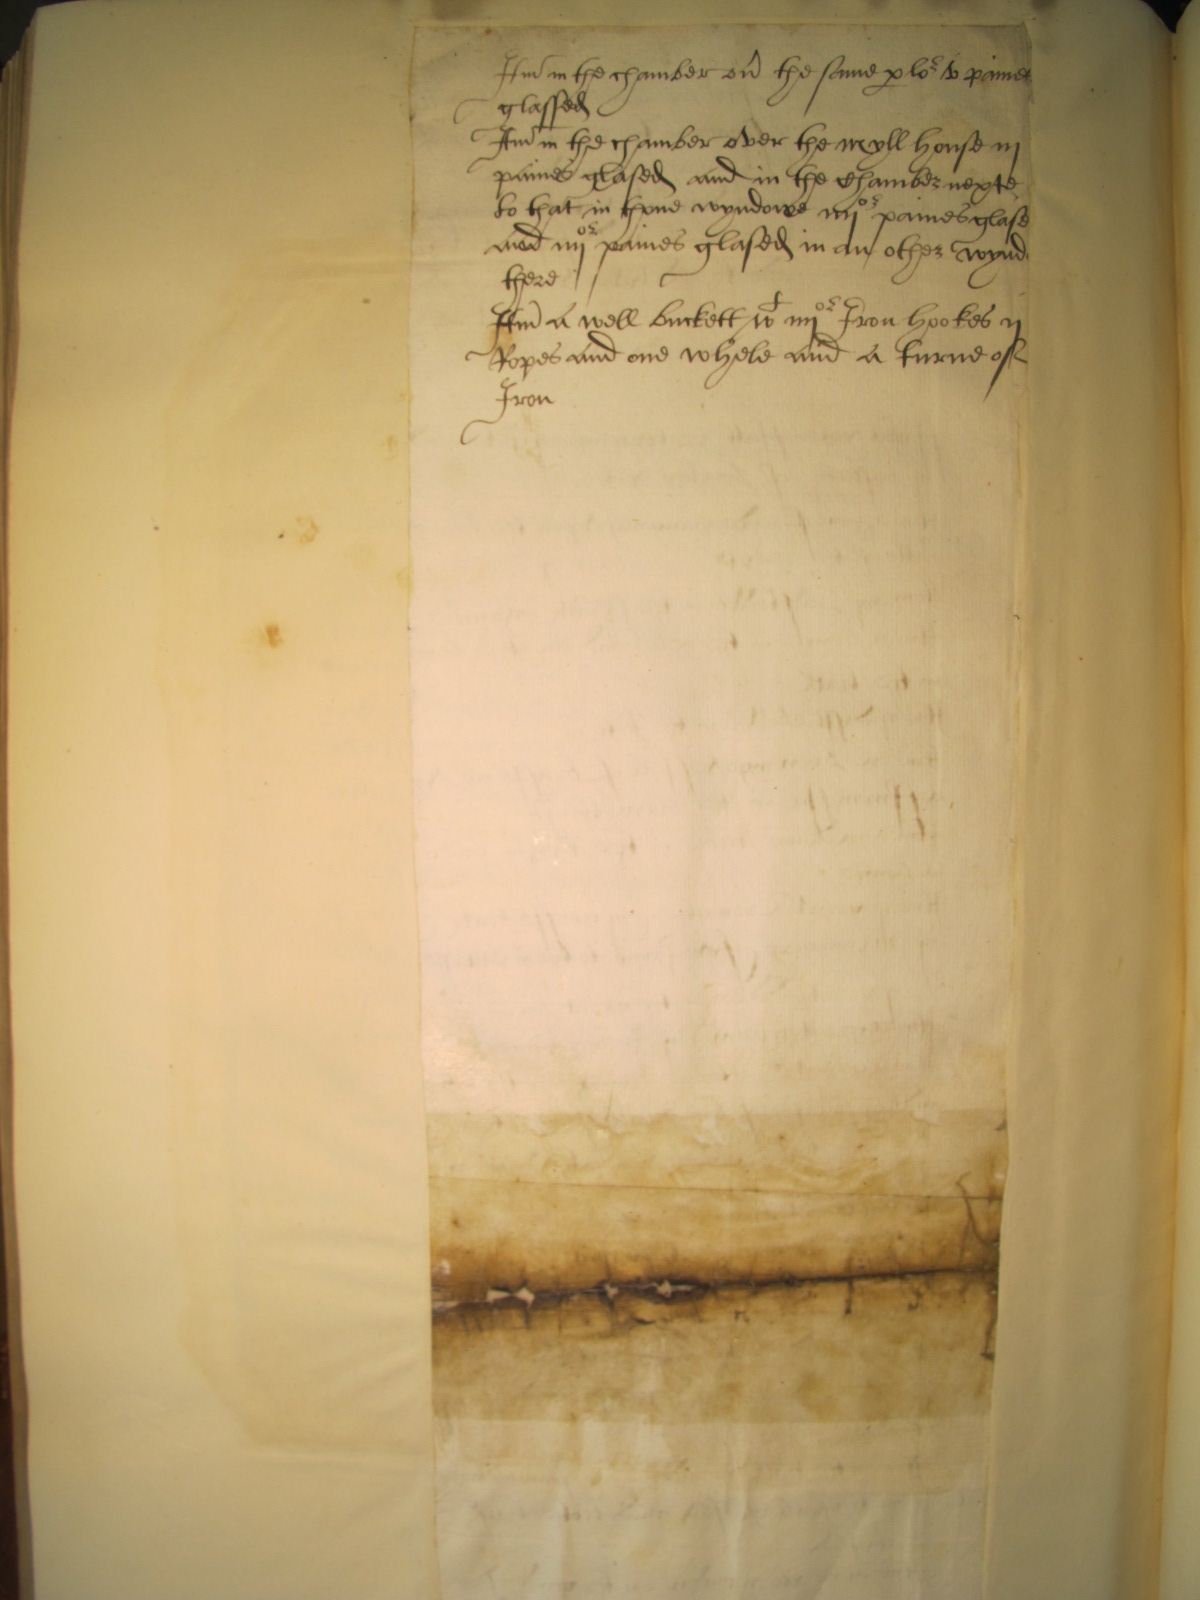 Itm in the chamber ov̄ the same p lor v paines
glassed
Itm in the chamber over the myll house iij
paines glased and in the chamber nexte
to that in thone wyndowe iiij or paines glase
and iiij or paines glased in an other wynd
there
Itm a well buckett wt iiij or Iron hookes ij
Ropes and one whele and a turne of
Iron